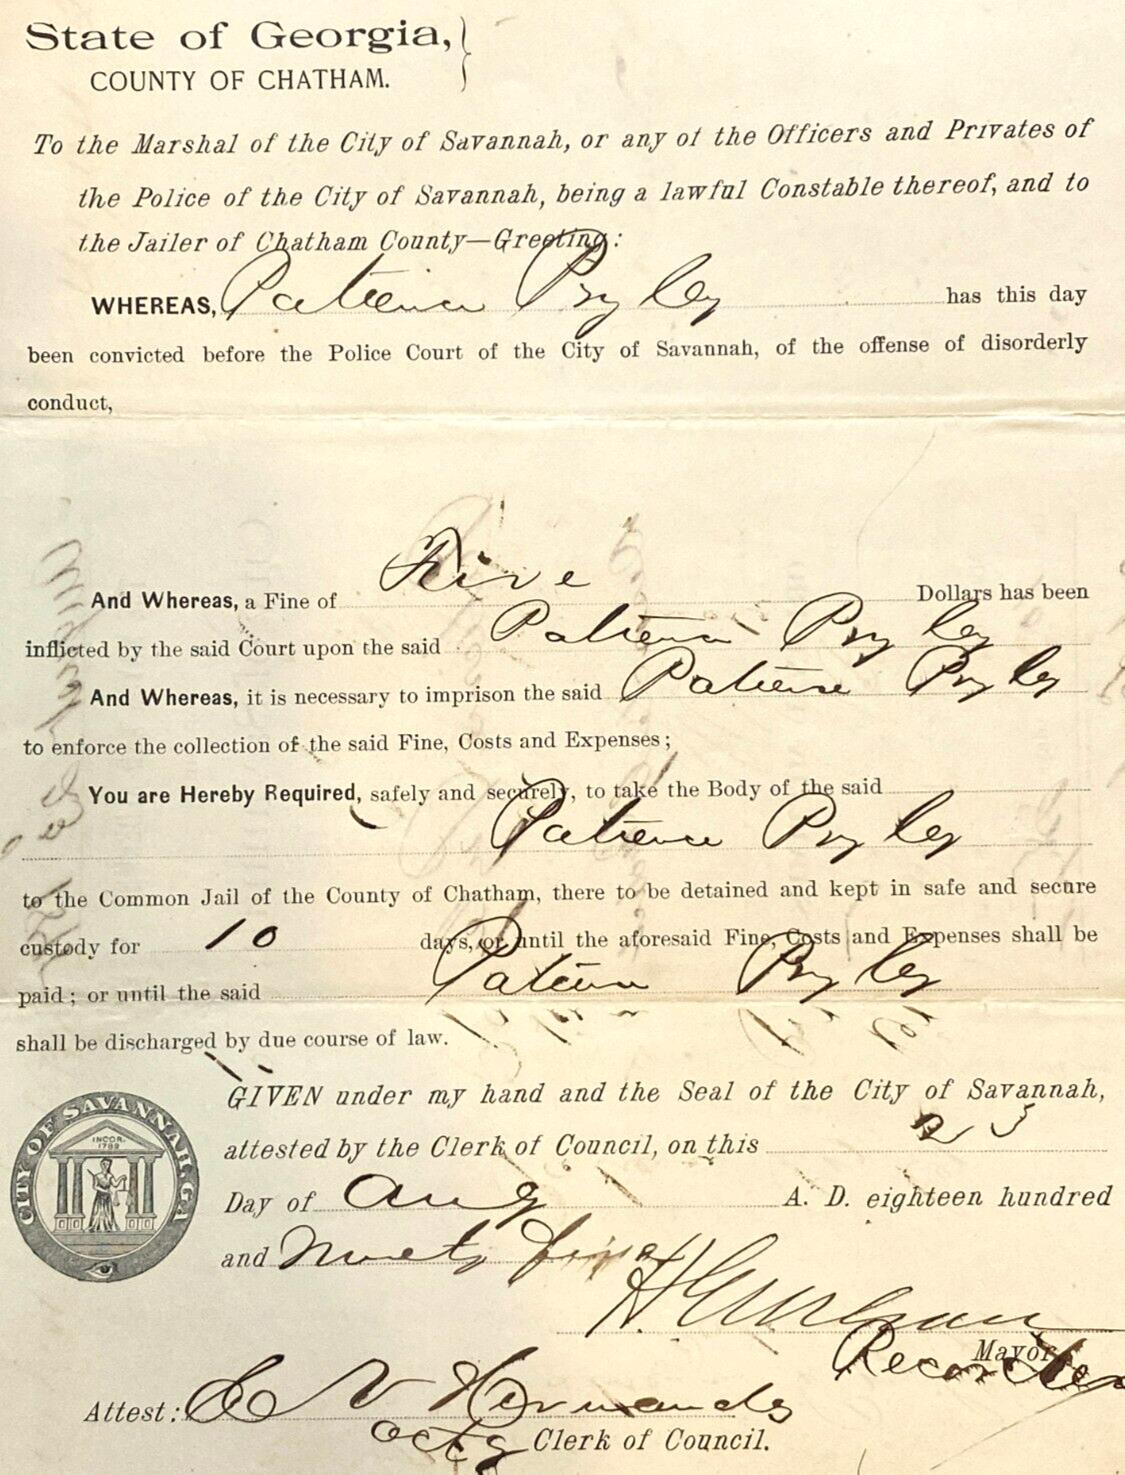 State of Georgia, }
COUNTY OF CHATHAM.
To the Marshal of the City of Savannah, or any of the Officers and Privates of
the Police of the City of Savannah, being a lawful Constable thereof, and to
the Jailer of Chatham County—Greeting:
WHEREAS, Patience Pryley has this day
been convicted before the Police Court of the City of Savannah, of the offense of disorderly
conduct,
And Whereas, a Fine of Five Dollars has been
inflicted by the said Court upon the said Patience Pryley
And Whereas, it is necessary to imprison the said Patience Pryley
to enforce the collection of the said Fine, Costs and Expenses;
You are Hereby Required, safely and securely, to take the Body of the said
Patience Pryley
to the Common Jail of the County of Chatham, there to be detained and kept in safe and secure
custody for 10 days, or until the aforesaid Fine, Costs and Expenses shall be
paid; or until the said Patience Pryley
shall be discharged by due course of law.
GIVEN under my hand and the Seal of the City of Savannah,
attested by the Clerk of Council, on this 25
Day of Aug A. D. eighteen hundred
and Ninety five
Mayor.
Recorder
Attest:
actg Clerk of Council.
CITY OF SAVANNAH, GA
INCOR.
1789